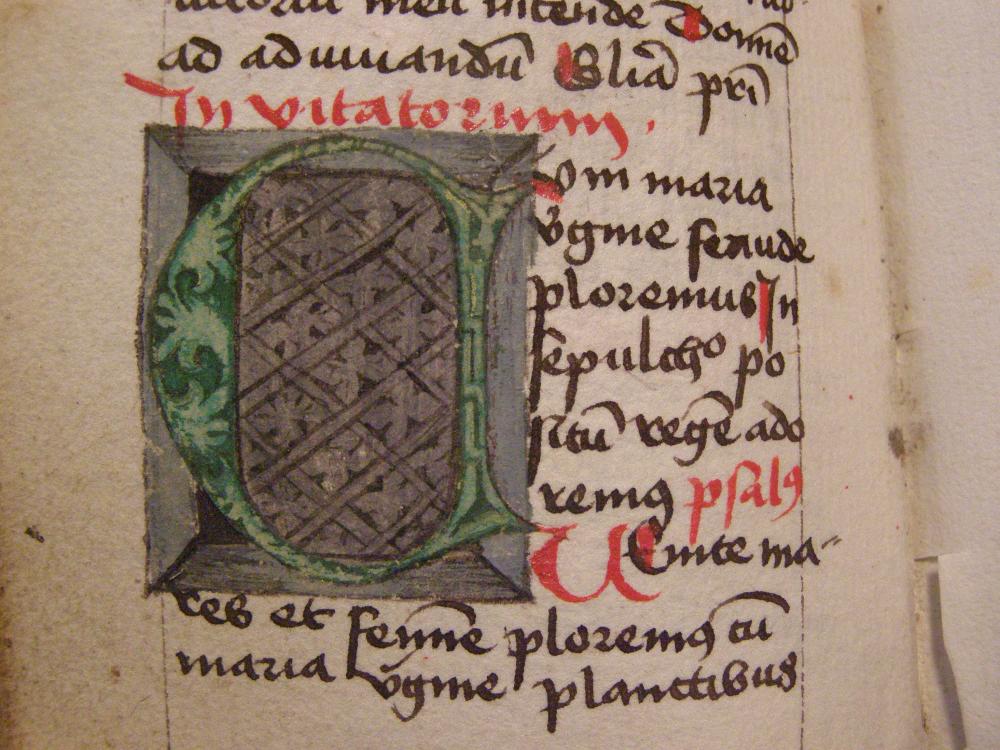 meū intende Domīe
ad adiuuandū Glīa prī
In vitatorium.
Cvm maria
v̄gine feruide
ploremus In
sepulchº po
situ̅ regē ado
remꝰ psalꝰ
Uenite ma-
res et femīe ploremꝰ cū
maria v̄gine planctibus